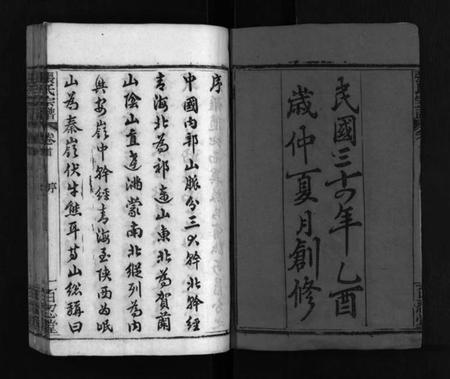 民國三十四年乙酉
歲仲夏月創修
序
中國內部山脈分三大幹北幹經
青海北為祁連山東北為賀蘭
山陰山直達滿蒙南北縱列為內
興安嶺中幹經青海至陝西為岷
山為秦嶺伏牛熊耳等山總稱曰
張氏宗譜 卷首 序 百忍堂